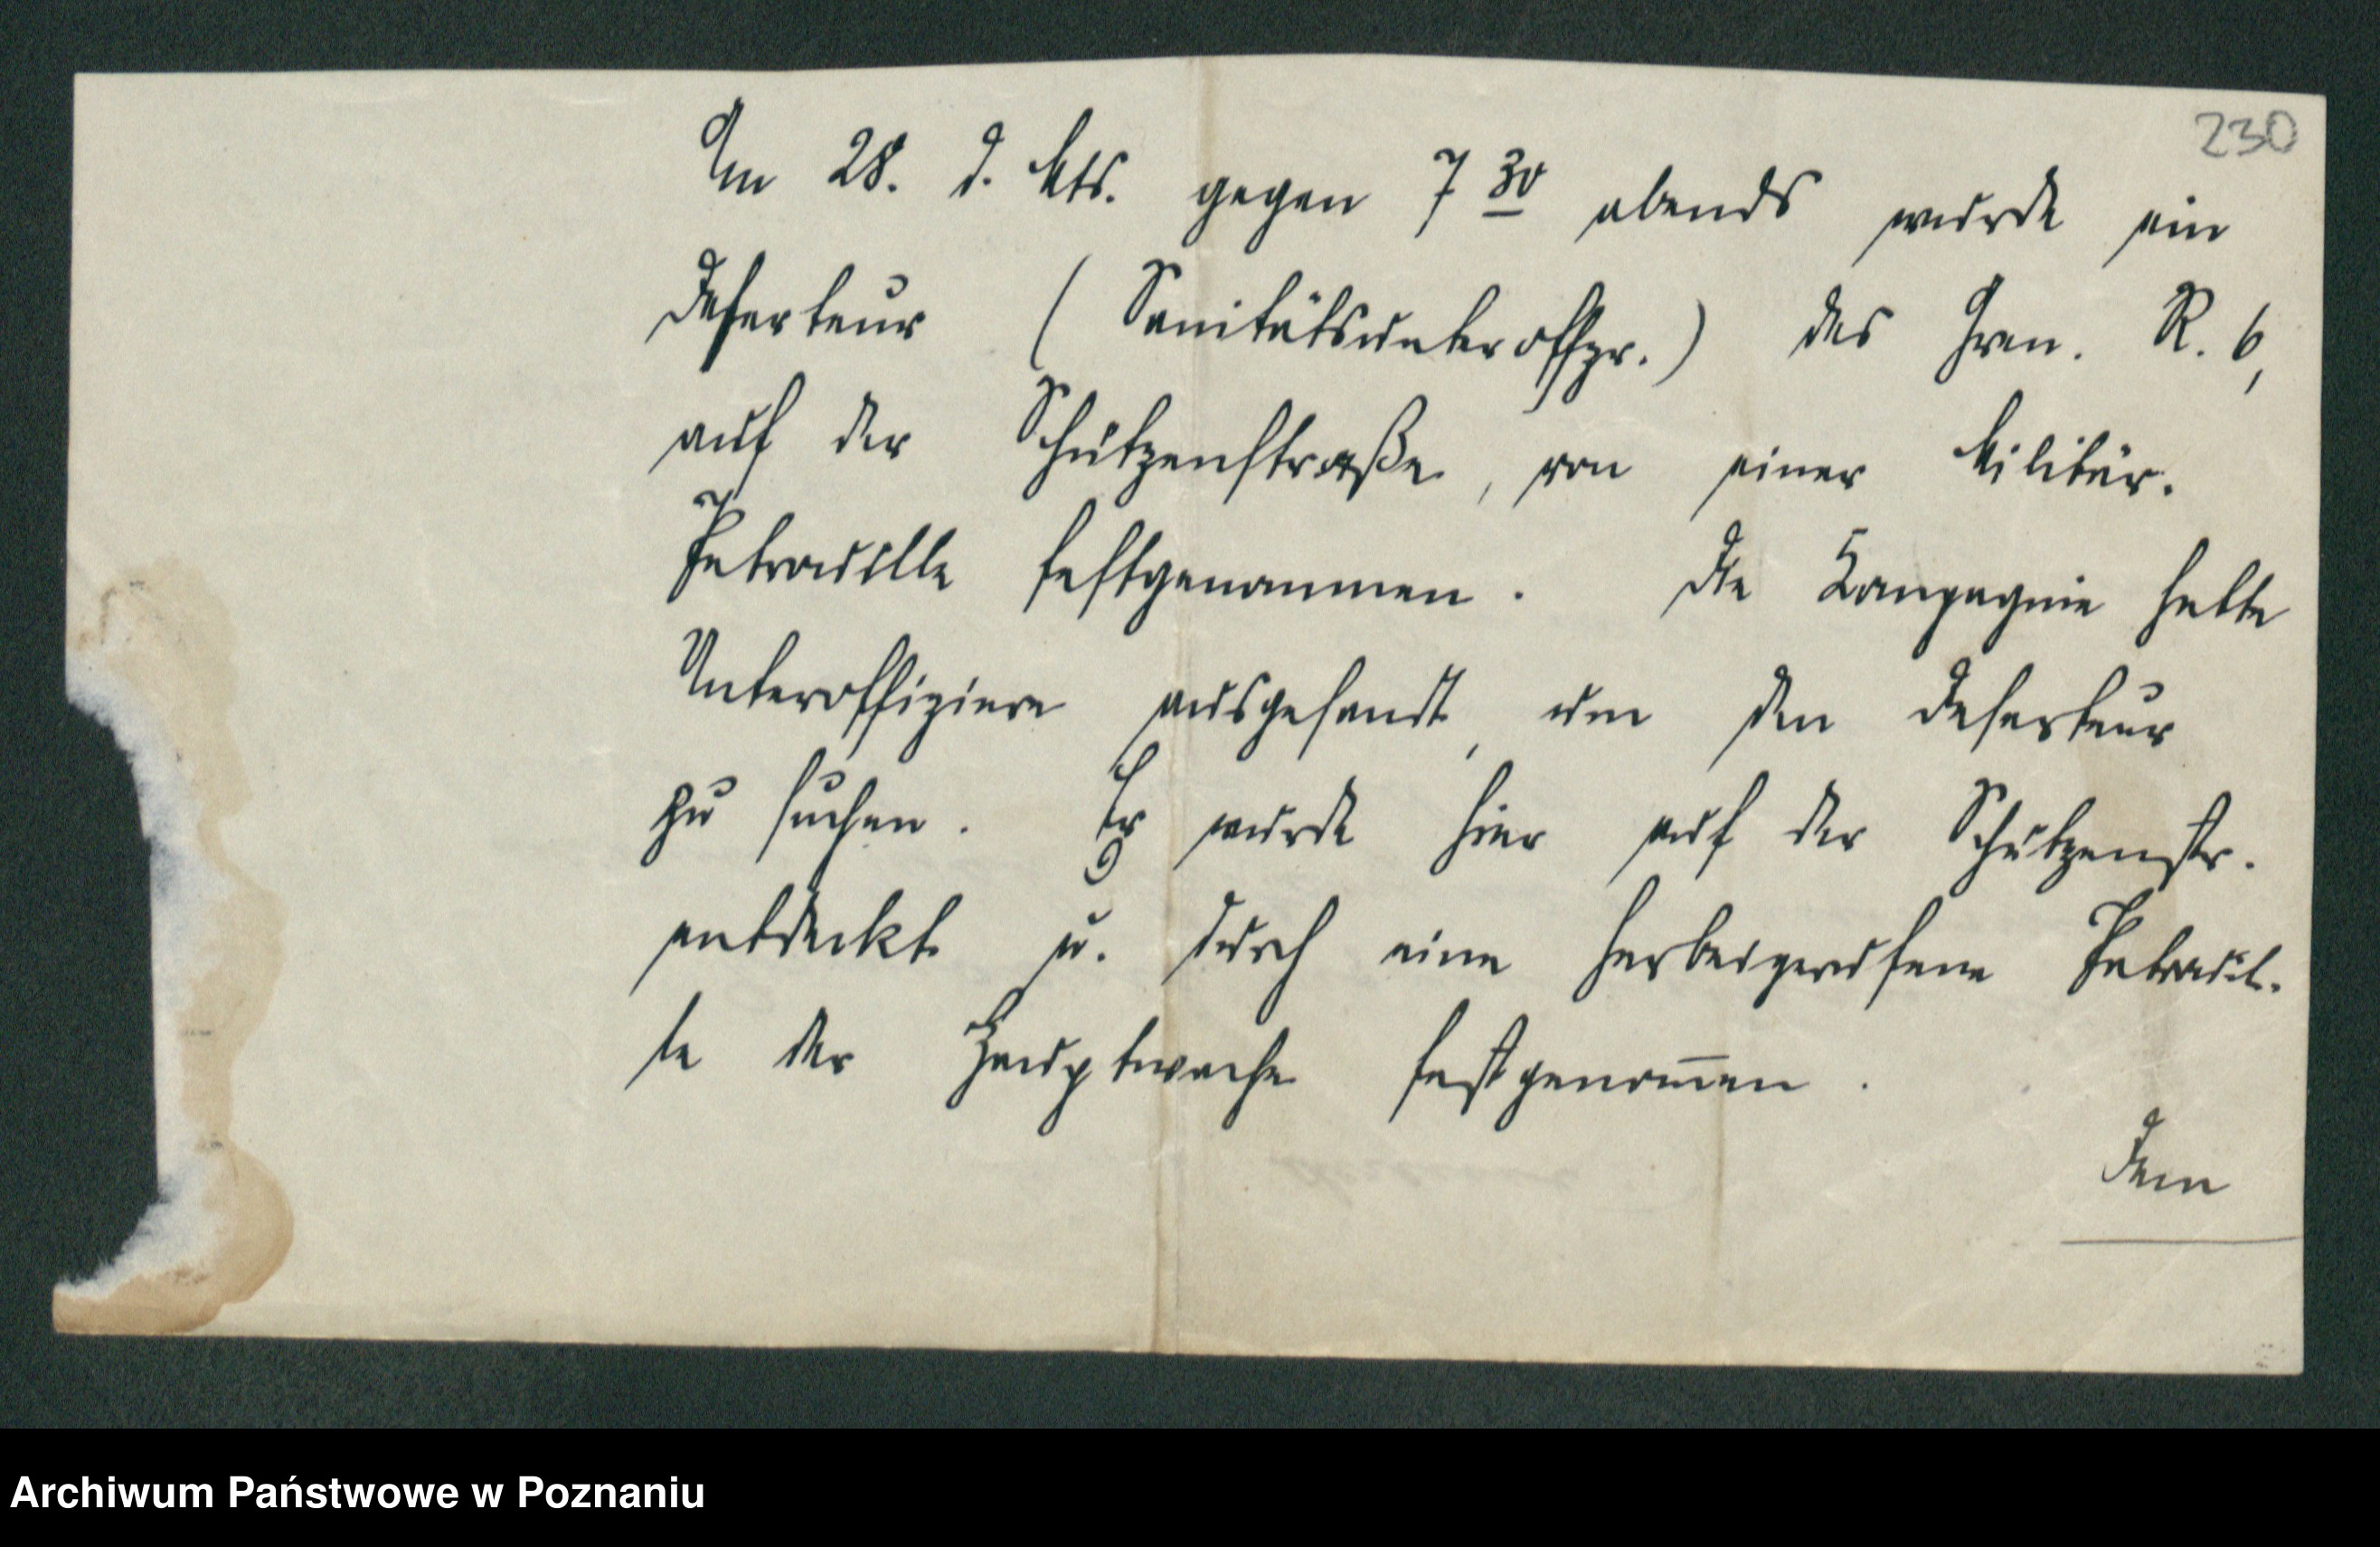 230
Am 28. d. Mts. gegen 7 30 abends wurde ein
Deserteur (Sanitätsunteroffzr.) des Gren. R. 6,
auf der Schützenstraße, von einer Militär.
Patrouille festgenommen. Die Kompagnie hatte
Unteroffiziere ausgesandt, um den Deserteur
zu suchen. Er wurde hier auf der Schützenstr.
entdeckt u. durch eine herbeigerufene Patrouil-
le der Hauptwache festgenom̅en.
Dem
Archiwum Państwowe w Poznaniu